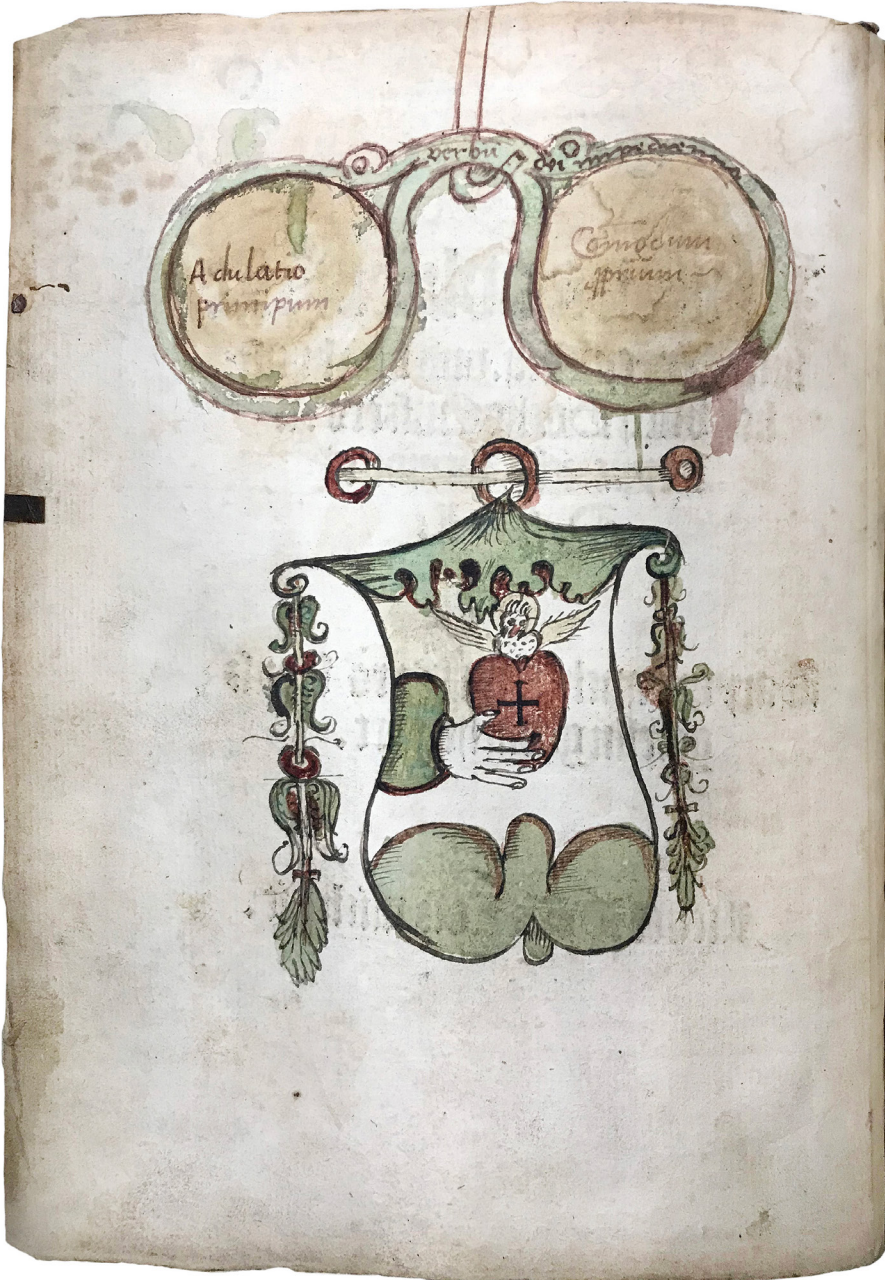 verbū dn̄i impediens
Adulatio
principum
Comodum
ꝓprium